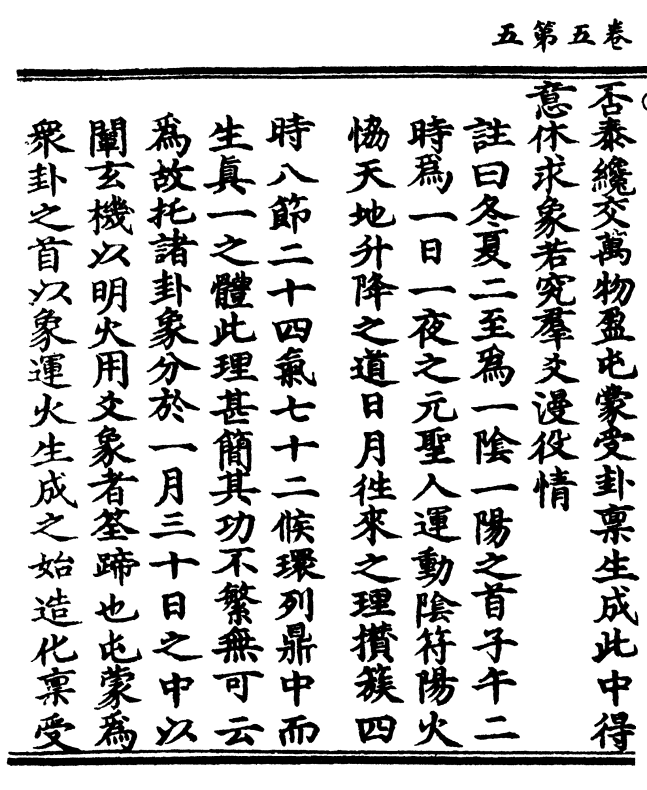 卷五第五
否泰纔交萬物盈屯蒙受卦禀生成此中得
意休求象若究羣爻漫役情
註曰冬夏二至爲一陰一陽之首子午二
時爲一日一夜之元聖人運動陰符陽火
恊天地升降之道日月徃來之理攅簇四
時八節二十四氣七十二候環列鼎中而
生眞一之體此理甚簡其功不繁無可云
爲故托諸卦象分於一月三十日之中以
闡玄機以明火用爻象者筌蹄也屯蒙爲
衆卦之首以象運火生成之始造化禀受